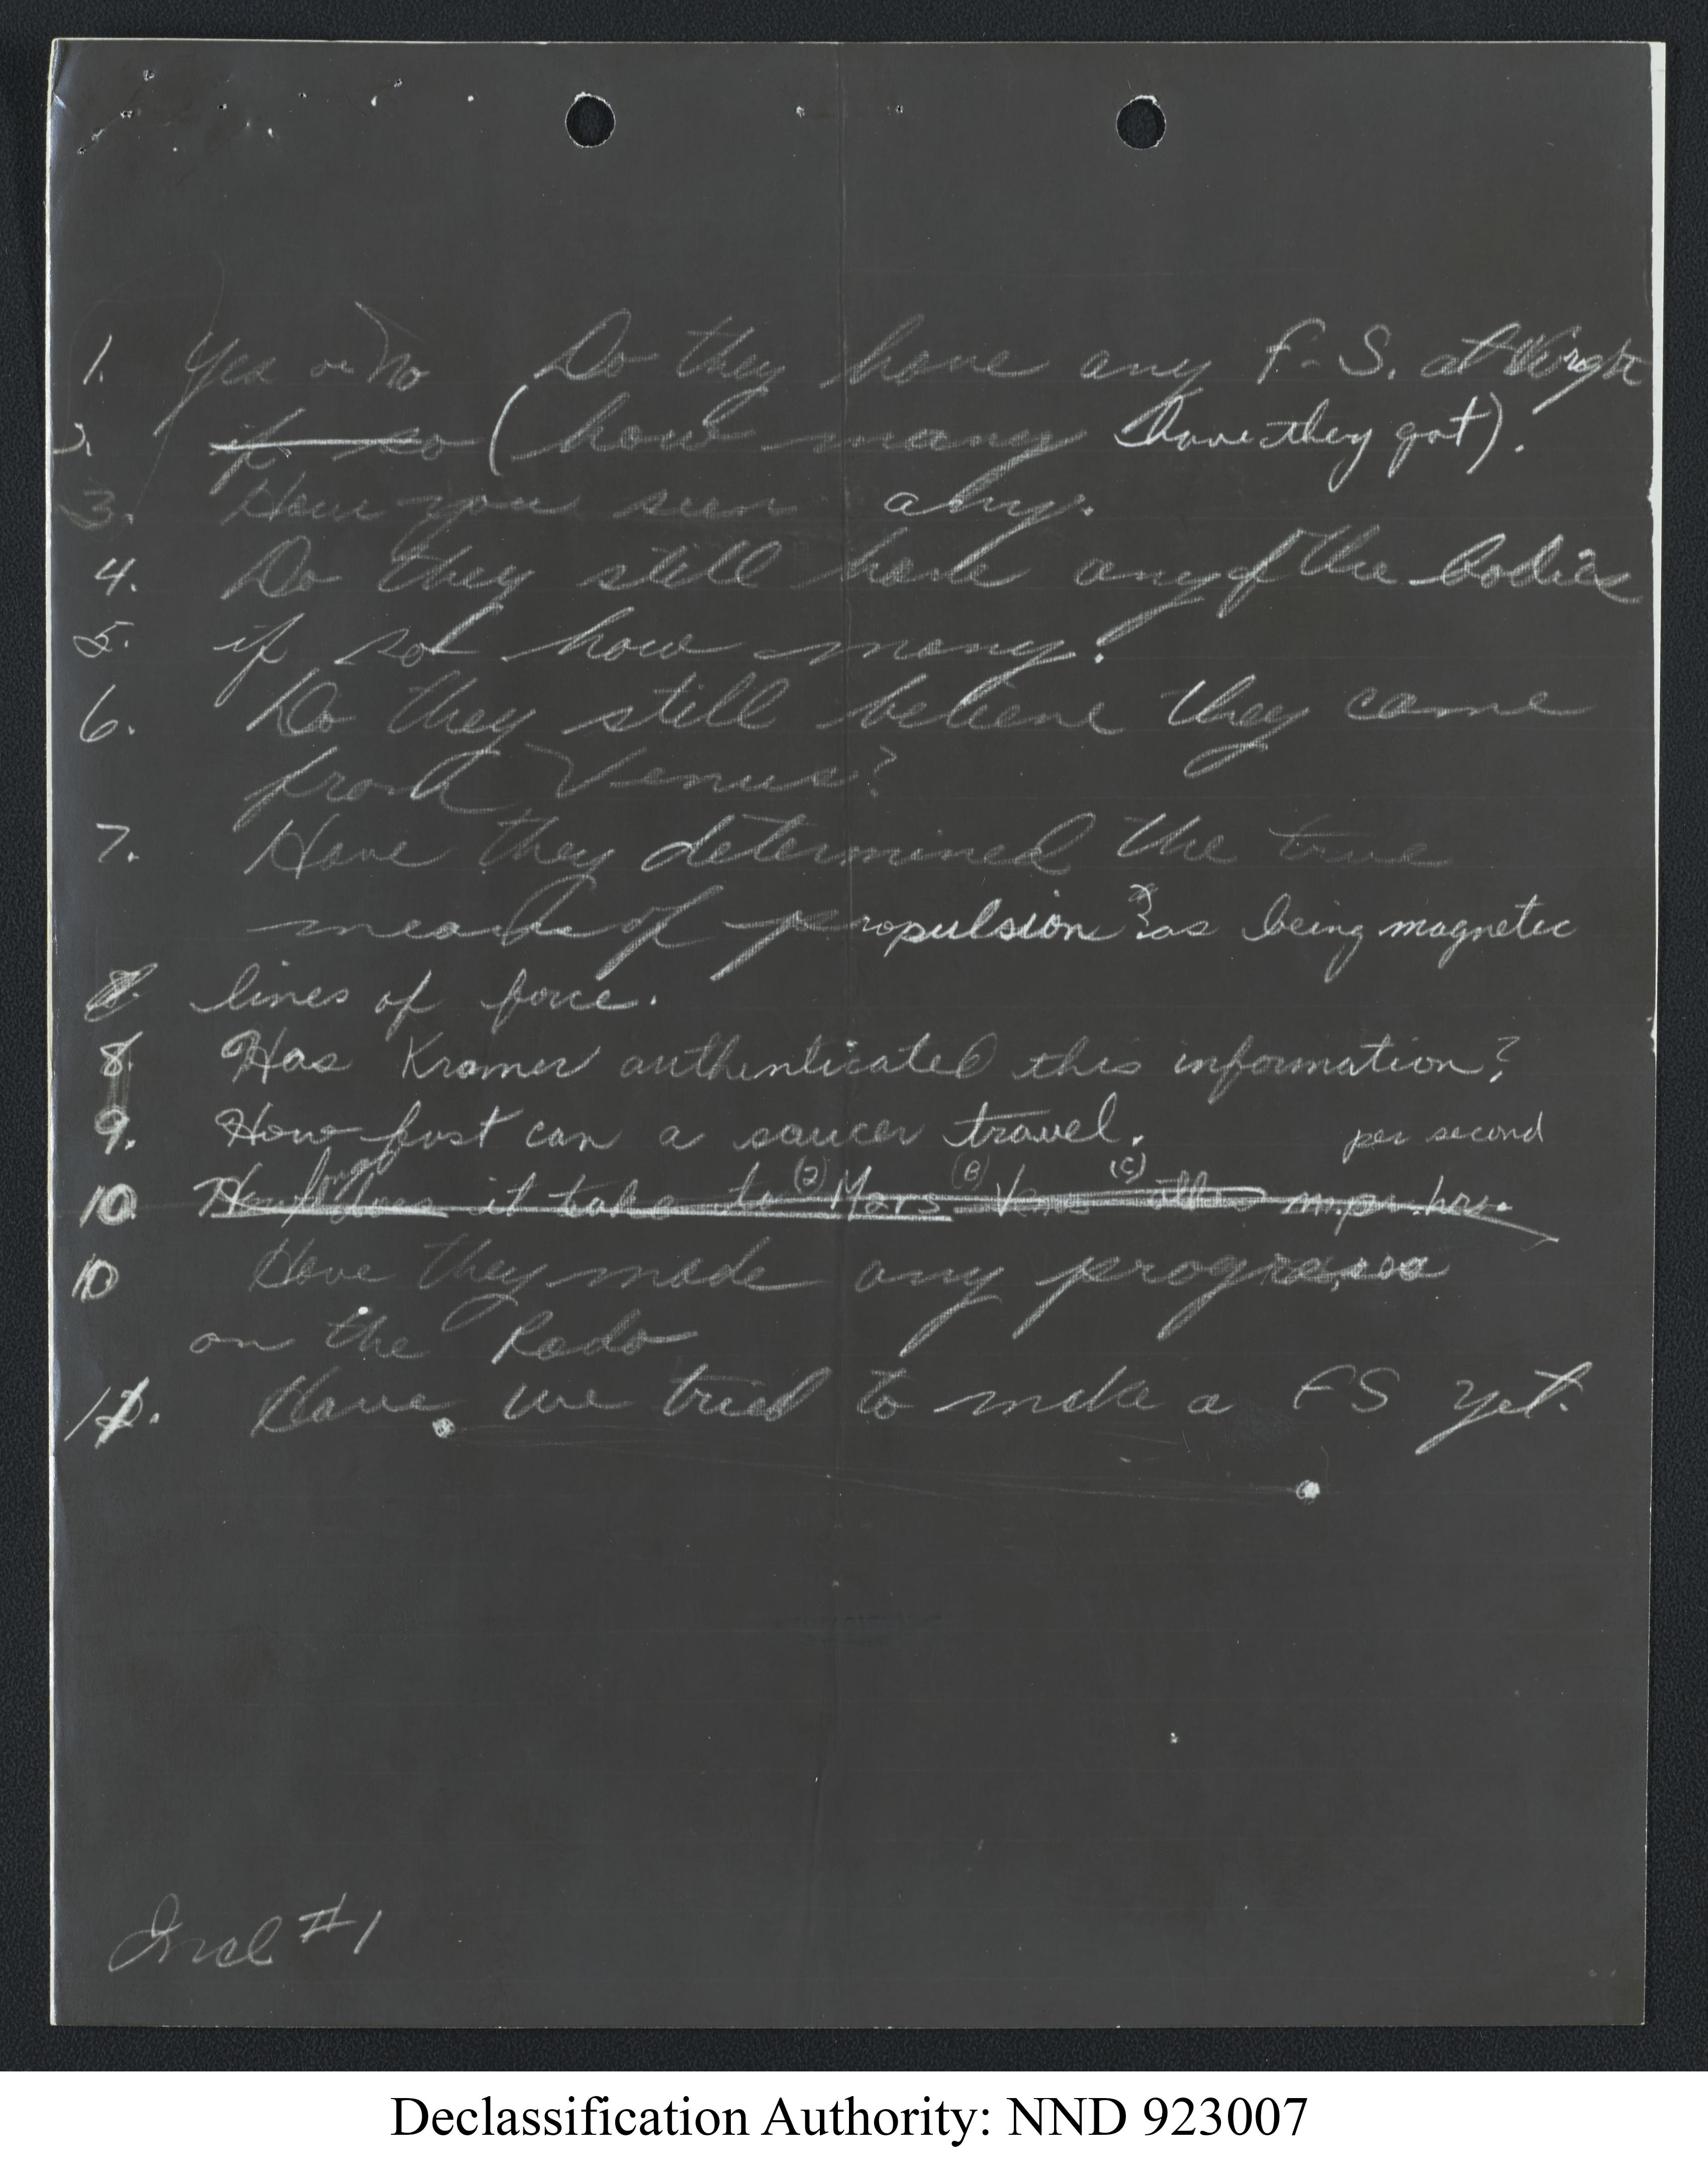 1. Yes or No Do they have any F-S. at Wright
2. if so (how many have they got).
3. Have you seen any.
4. Do they still have any of the bodies
5. if so how many?
6. Do they still believe they came
from Venus?
7. Have they determined the true
means of propulsion? as being magnetic
8 lines of force.
8. Has Kramer authenticated this information?
9. How fast can a saucer travel. per second
10. How long does it take to (a) Mars (B) Venus (C) m.pr.hrs.
10 Have they made any progress
on the Rado
11. Have we tried to make a FS yet.
Incl #1
Declassification Authority: NND 923007